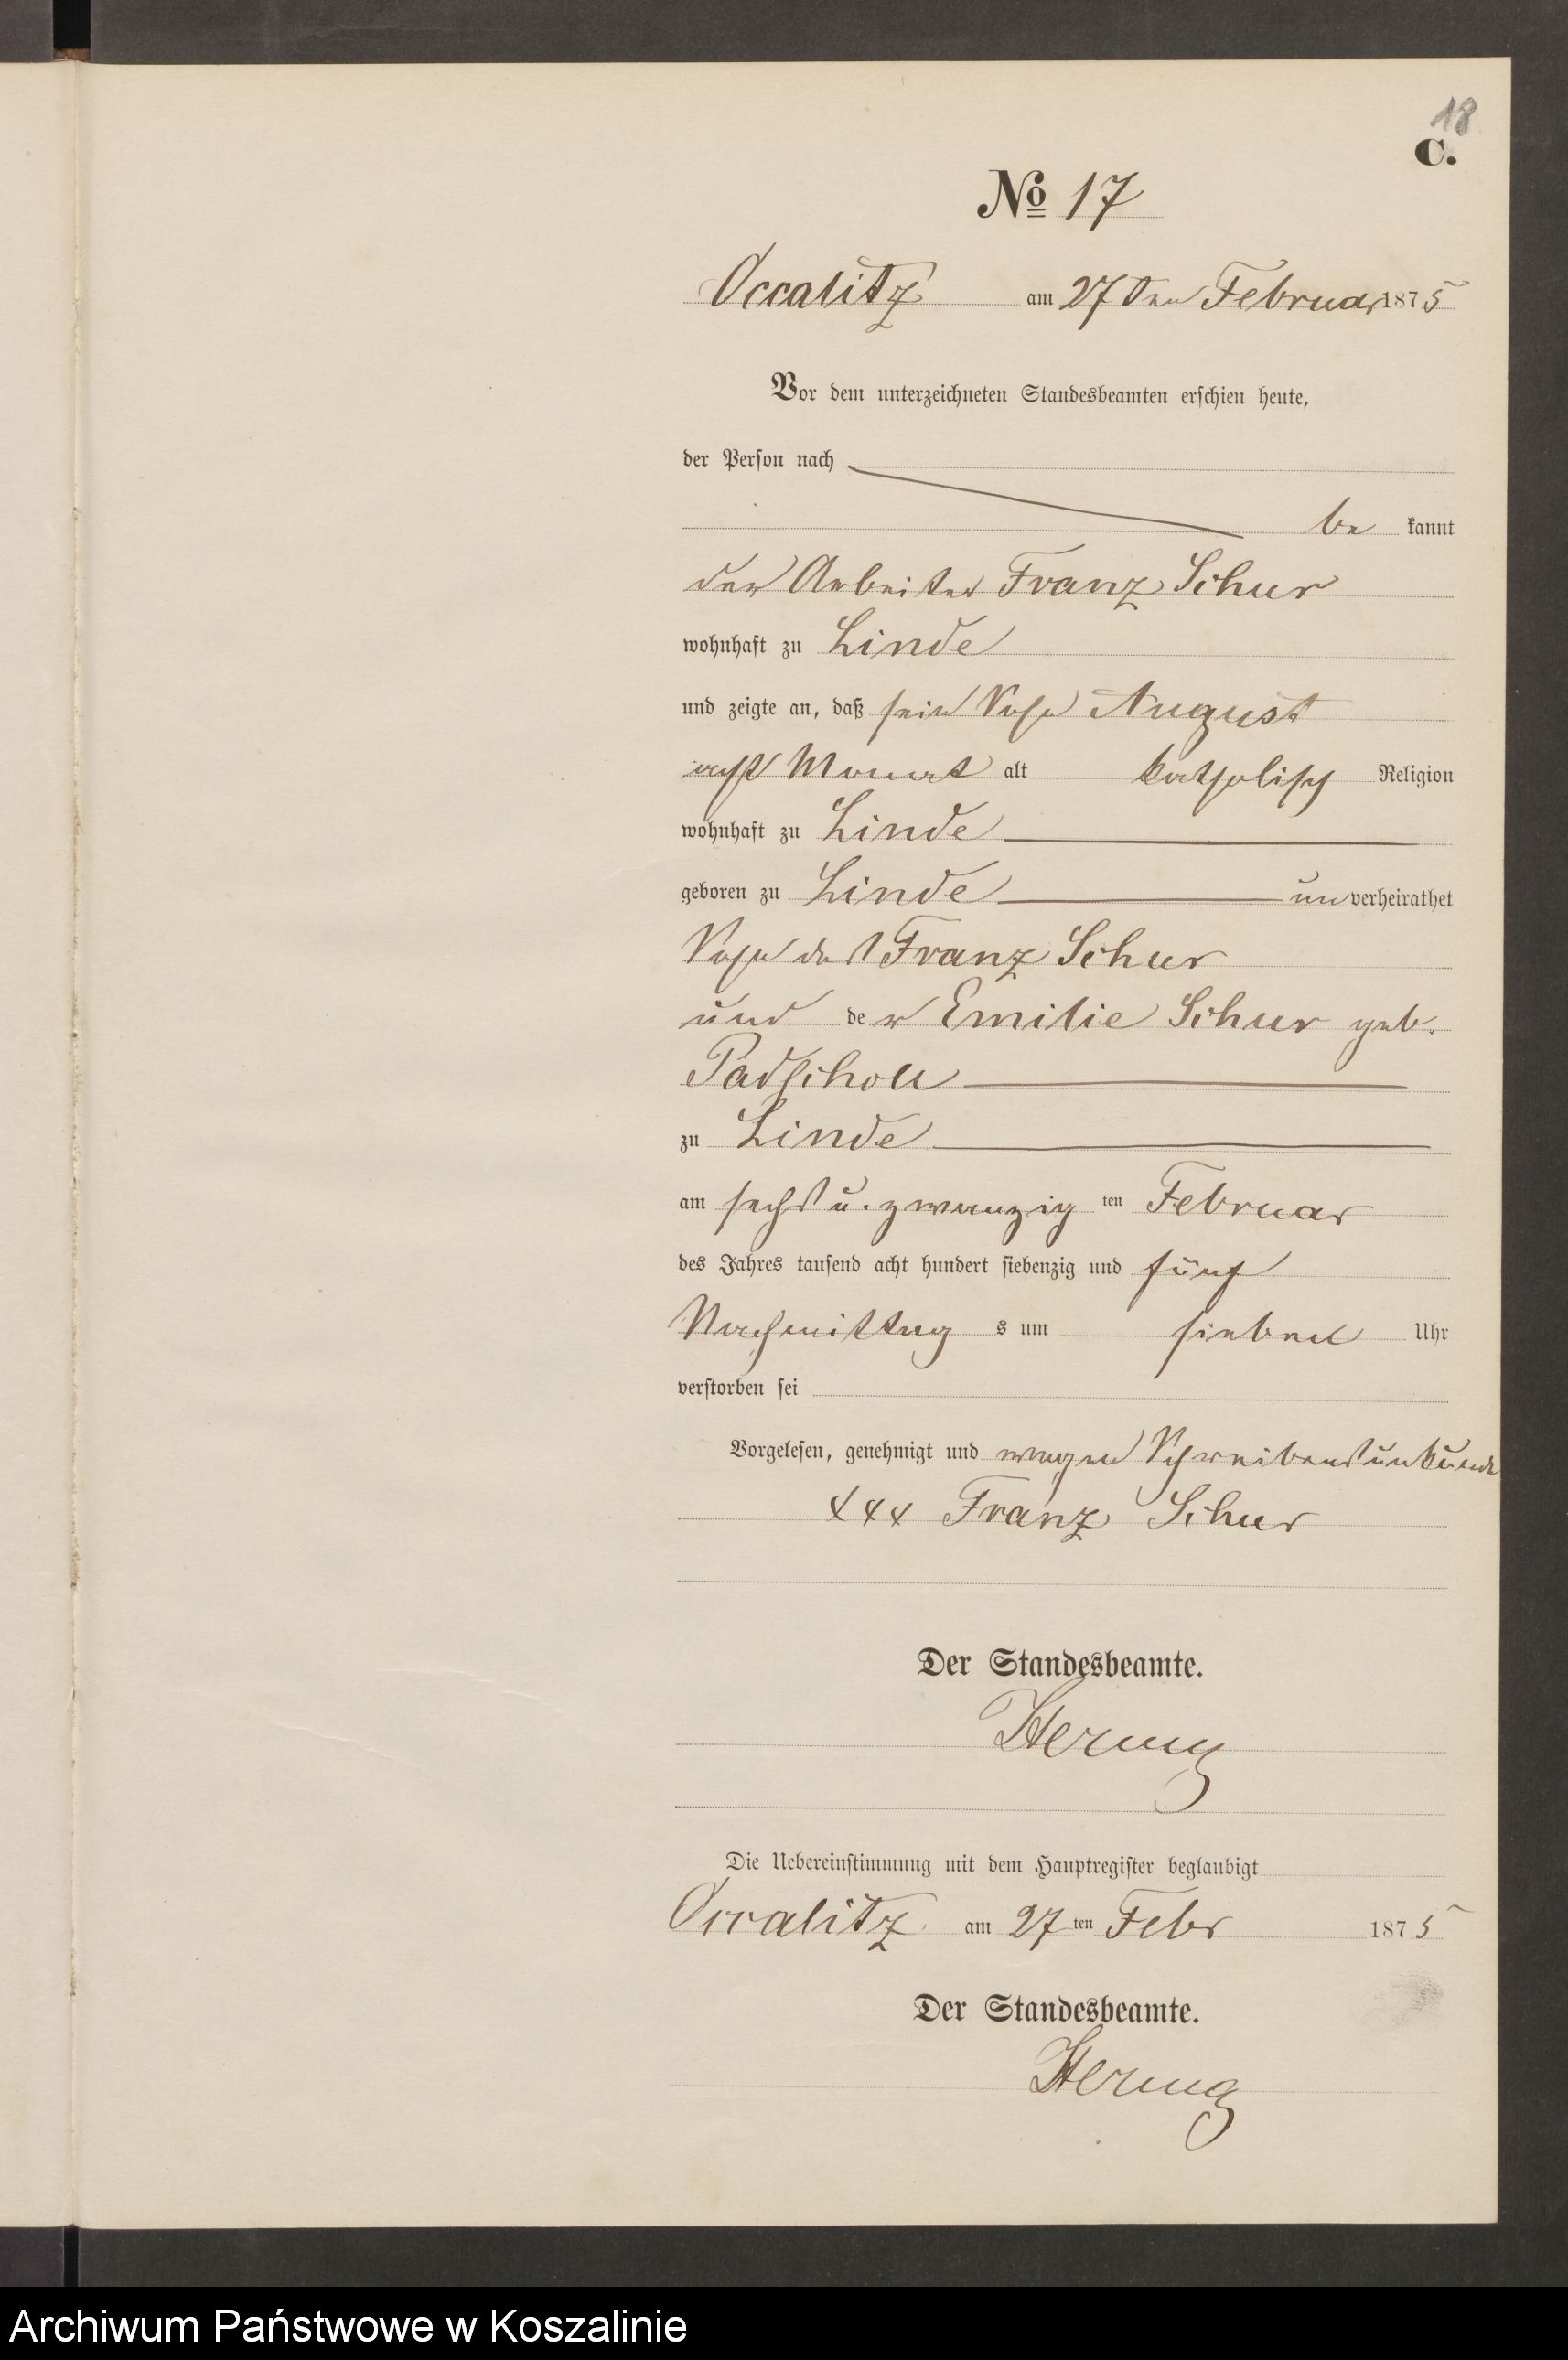 18
C.
No 17
Occalitz am 27ten Februar 1875
Vor dem unterzeichneten Standesbeamten erschien heute,
der Person nach
be kannt
der Arbeiter Franz Schur
wohnhaft zu Linde
und zeigte an, daß sein Sohn August
acht Monat alt katholisch Religion
wohnhaft zu Linde
geboren zu Linde unverheirathet
Sohn des Franz Schur
und der Emilie Schur geb.
Padscholl
zu Linde
am sechs u. zwanzig ten Februar
des Jahres tausend acht hundert siebenzig und fünf
Nachmittag s um sieben Uhr
verstorben sei
Vorgelesen, genehmigt und wegen Schreibensunkunde
xxx Franz Schur
Der Standesbeamte.
Die Uebereinstimmung mit dem Hauptregister beglaubigt
Occalitz am 27ten Febr 1875
Der Standesbeamte.
Archiwum Państwowe w Koszalinie